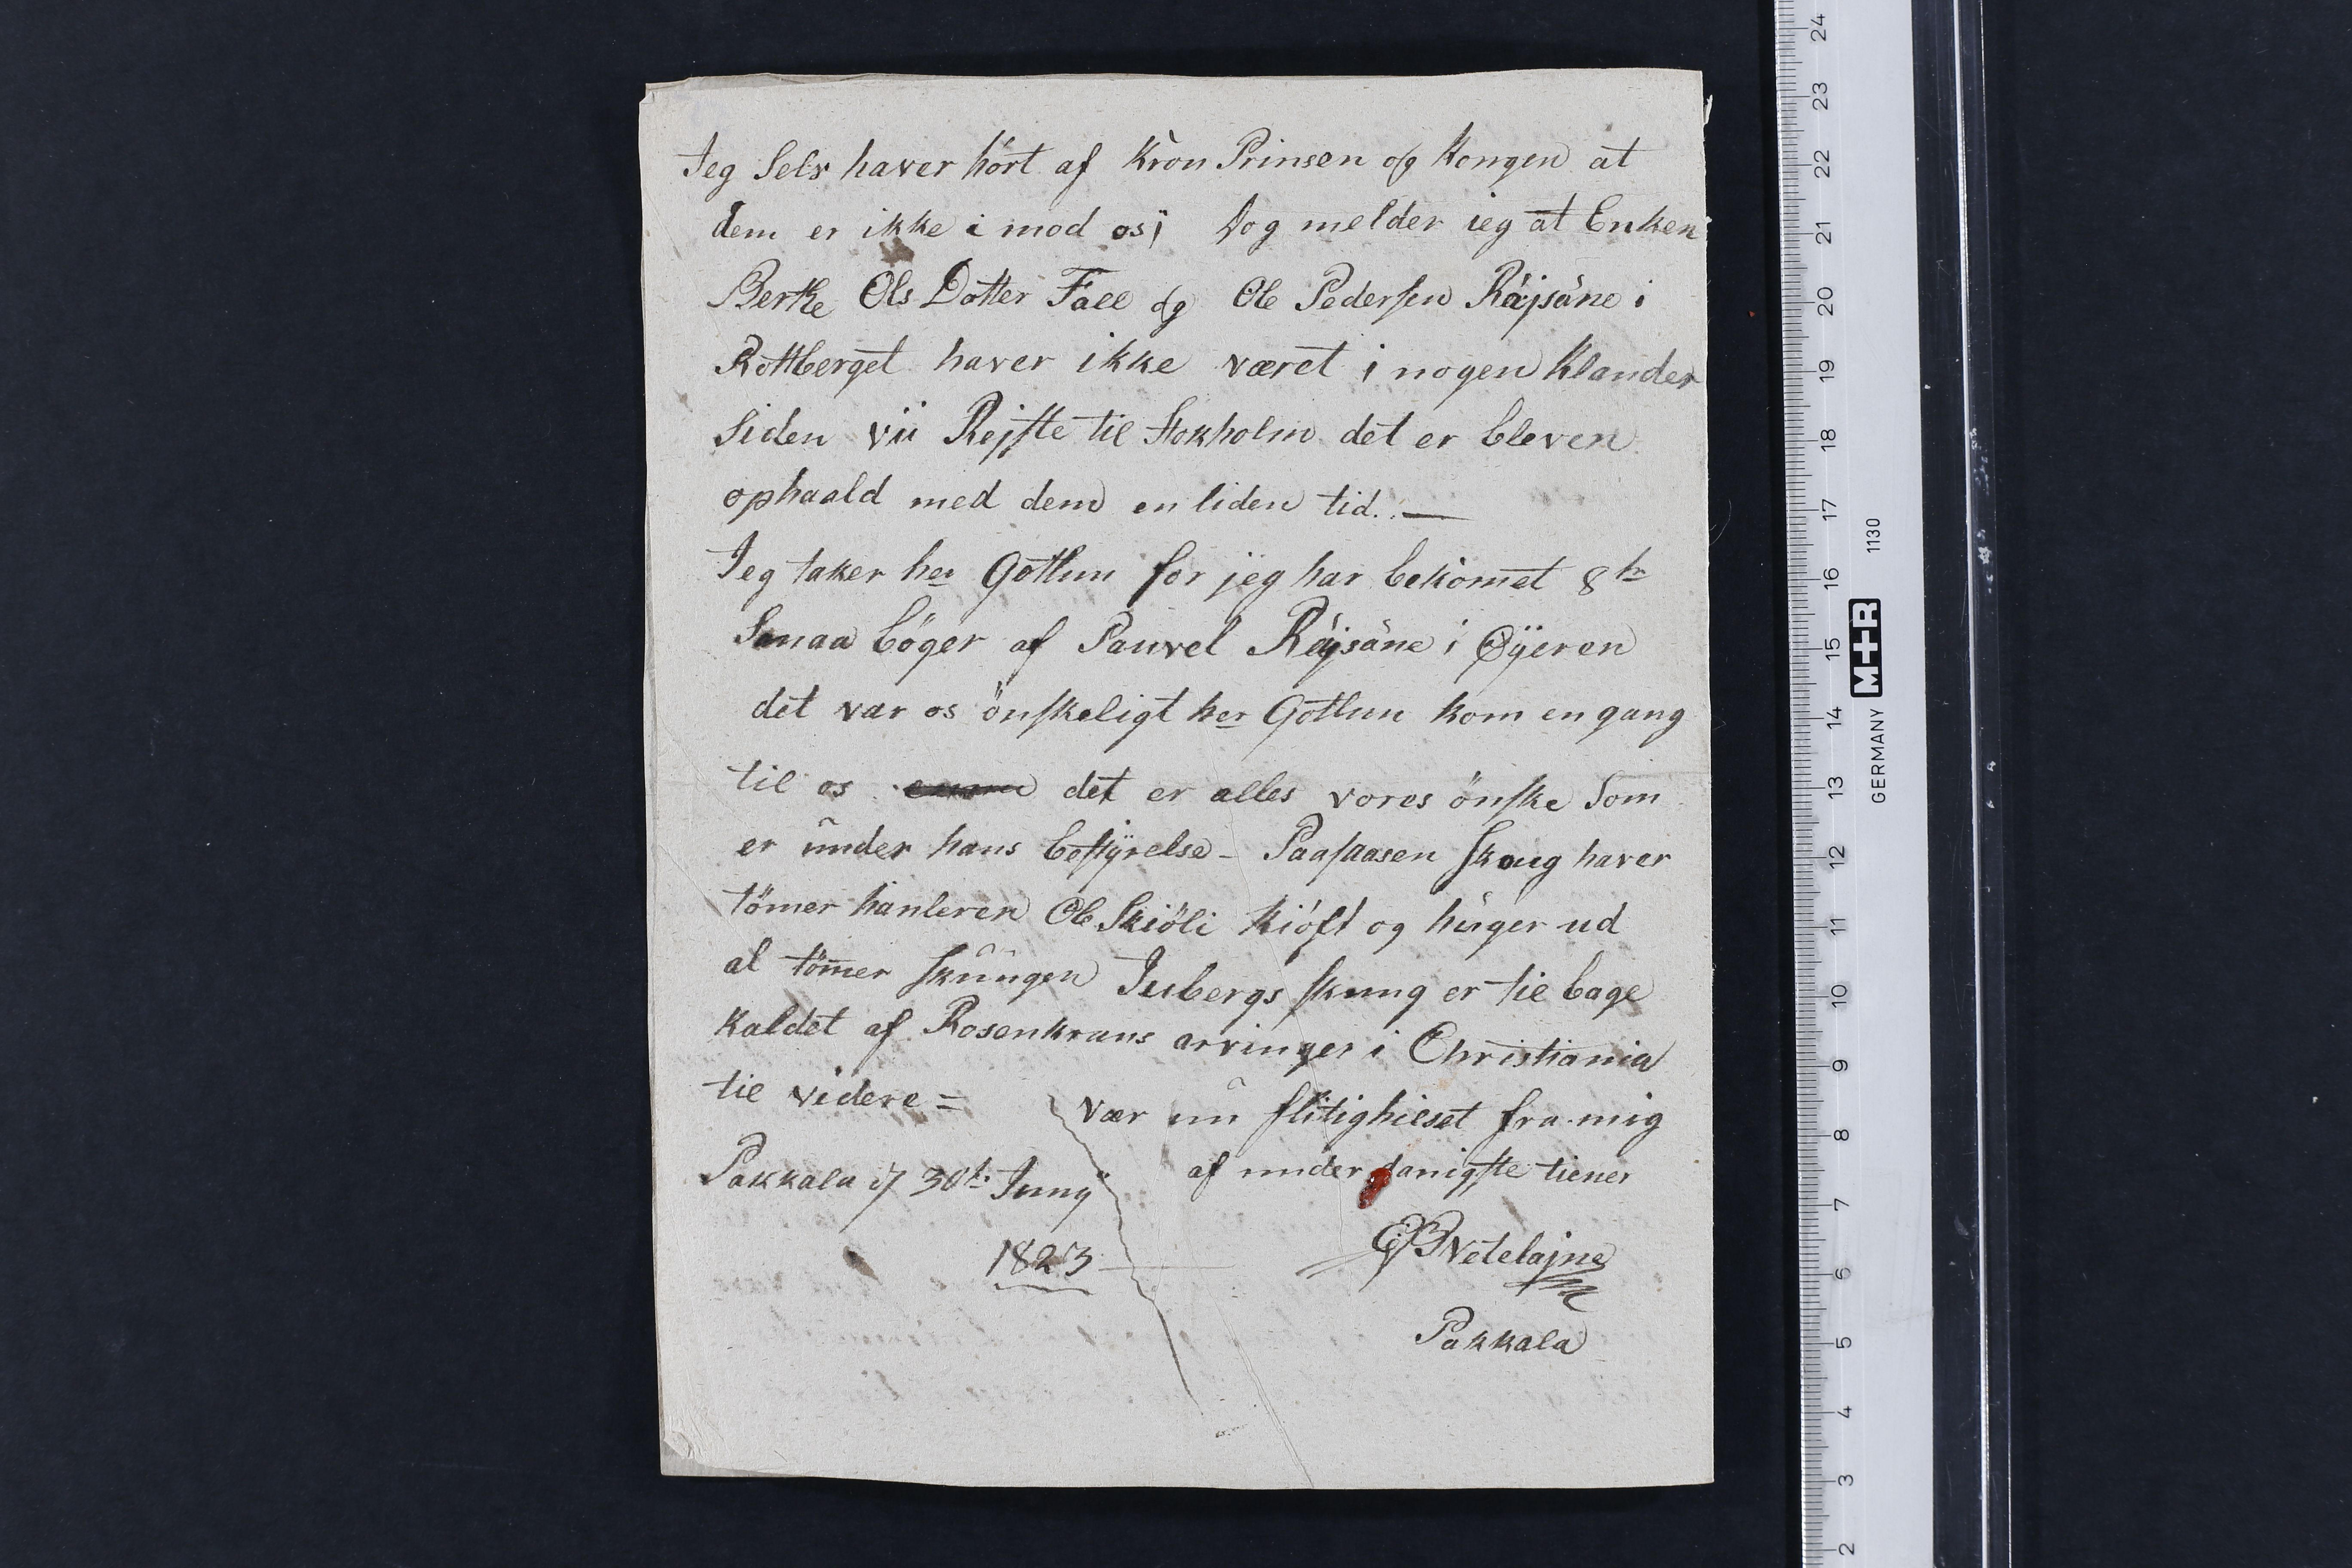 Jeg Selv haver hört af Kron Prinsen og Kongen at
dem er ikke i mod os; dog melder ieg at Enken
Berthe Ols Dotter Fall og Ole Pedersen Räjsäne i
Rottberget haver ikke været i nogen Klander
Siden vii Rejste til Stokholm det er bleven
ophaald med dem en liden tid. —
Jeg taker her Gottlun for jeg har bekömet 8
Smaa böger af Pauvel Räjsäne i Øÿeren
det var os önskeligt her Gottlun kom en gang
til os det er alles vores önske Som
er under hans bestÿrelse - Skoug haver
tömer hanleren Ole Skiöli kiöft og huger ud
al tömer skûûgen skuug er til bage
kaldet af Rosenkrans arvinger i Christiania
til videre = Vær nu flitighilset fra mig
Pakkala 30t. Juny af underdanigste tiener
1823 Vetelajne
Pakkala
24
23
22
21
20
19
18
17
16
15
14
13
12
11
10
9
8
7
6
5
4
3
2
GERMANY M+R 1130